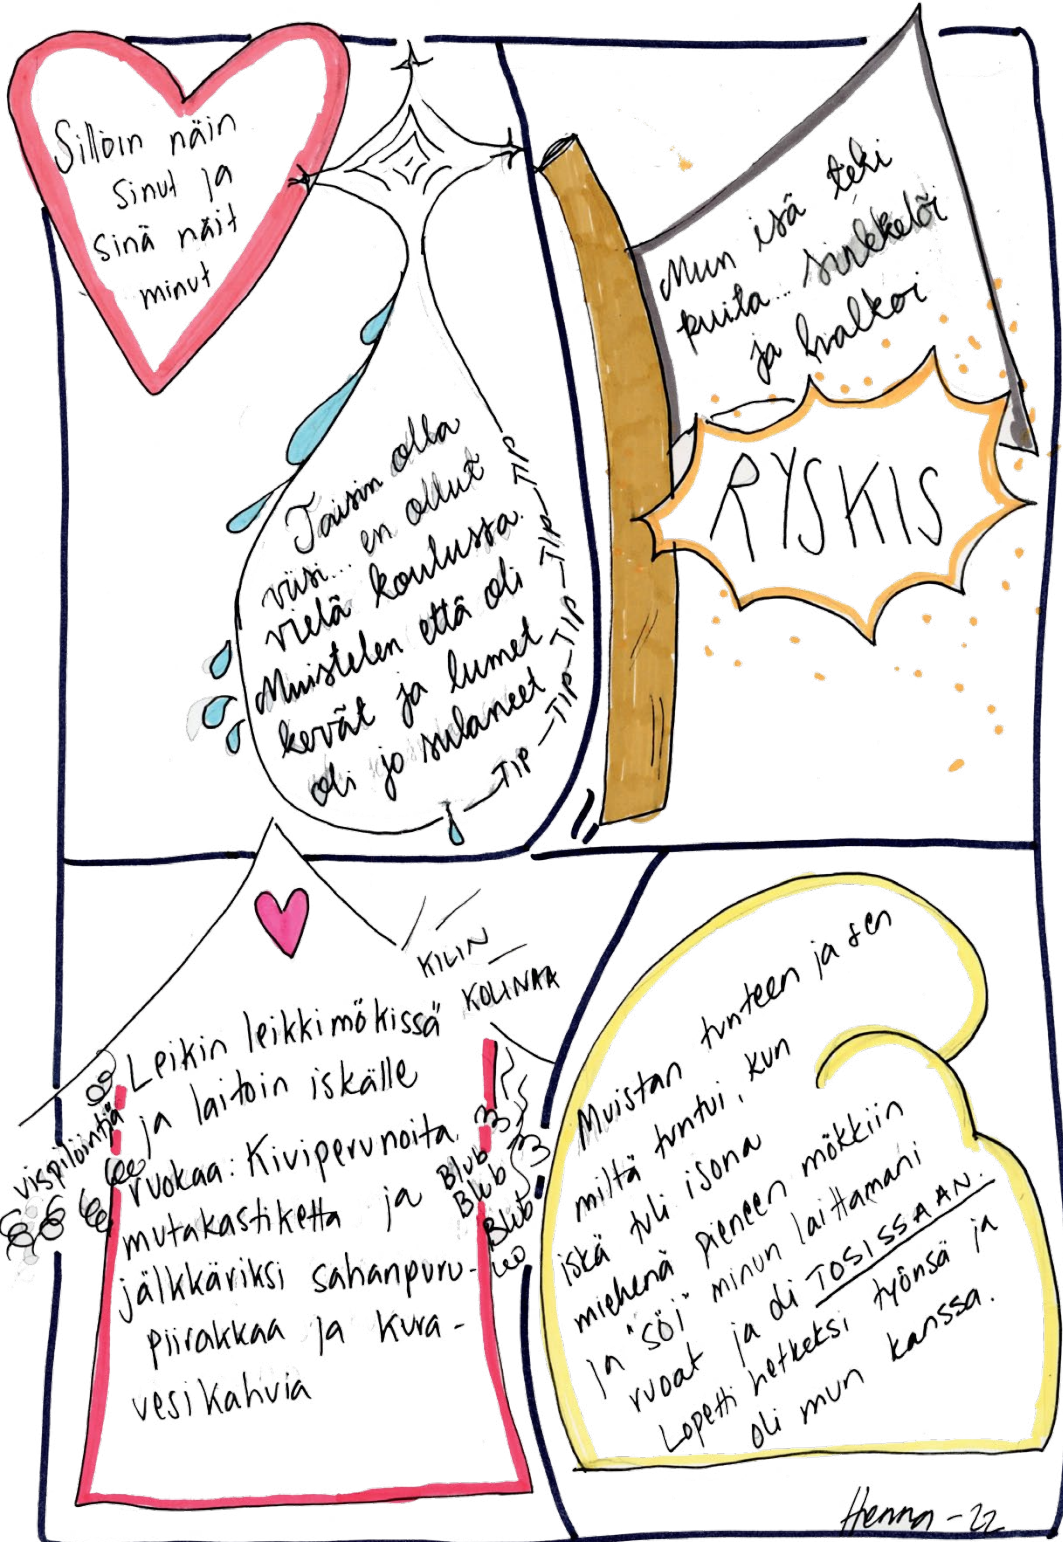 Silloin näin
sinut ja
sinä näit
minut
Taisin olla
viisi... en ollut
vielä koulussa.
Muistelen että oli
kevät ja lumet
oli jo sulaneet
TIP – TIP – TIP – TIP – TIP – TIP
Mun isä teki
puita... sirkkelöi
ja halkoi
RYSKIS
KILIN
KOLINAA
Leikin leikkimökissä
ja laitoin iskälle
ruokaa: Kiviperunoita,
mutakastiketta ja
jälkkäriksi sahanpuru-
piirakkaa ja kura-
vesikahvia
vispilöintiä
Blub
Blub
Blub
Muistan tunteen ja sen
miltä tuntui, kun
iskä tuli isona
miehenä pieneen mökkiin
ja "söi" minun laittamani
ruoat ja oli TOSISSAAN.
Lopetti hetkeksi työnsä ja
oli mun kanssa.
Henna -22